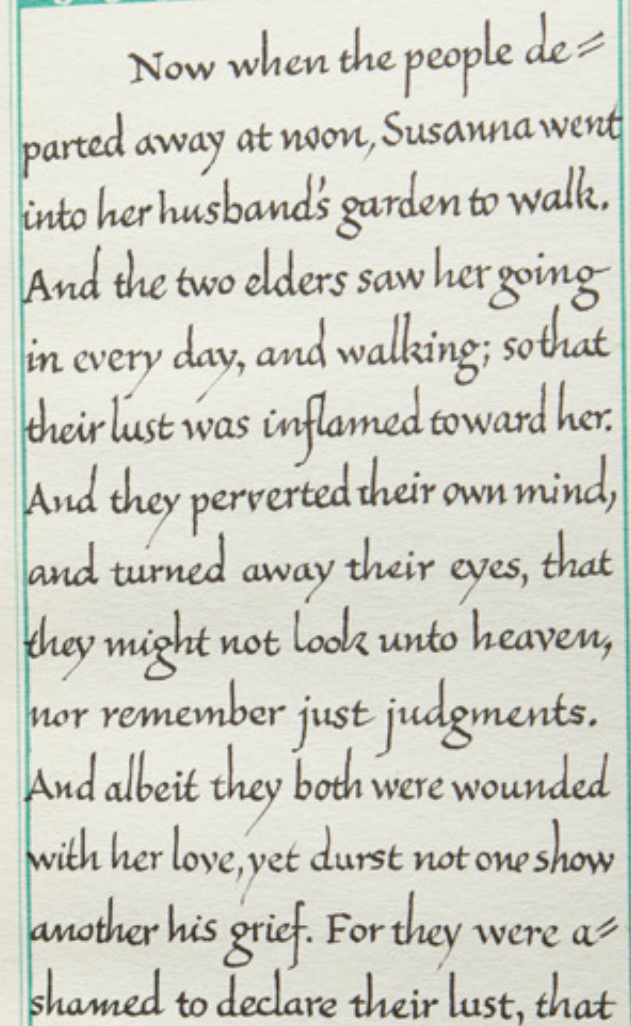 Now when the people de=
parted away at noon, Susanna went
into her husband's garden to walk.
And the two elders saw her going
in every day, and walking; so that
their lust was inflamed toward her.
And they perverted their own mind,
and turned away their eyes, that
they might not look unto heaven,
nor remember just judgments.
And albeit they both were wounded
with her love, yet durst not one show
another his grief. For they were a=
shamed to declare their lust, that